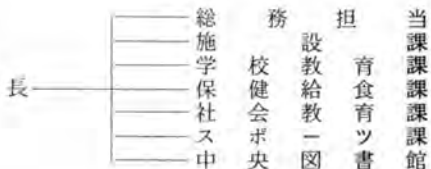 長
総務担当
施設課
学校教育課
保健給食課
社会教育課
スポーツ課
中央図書館